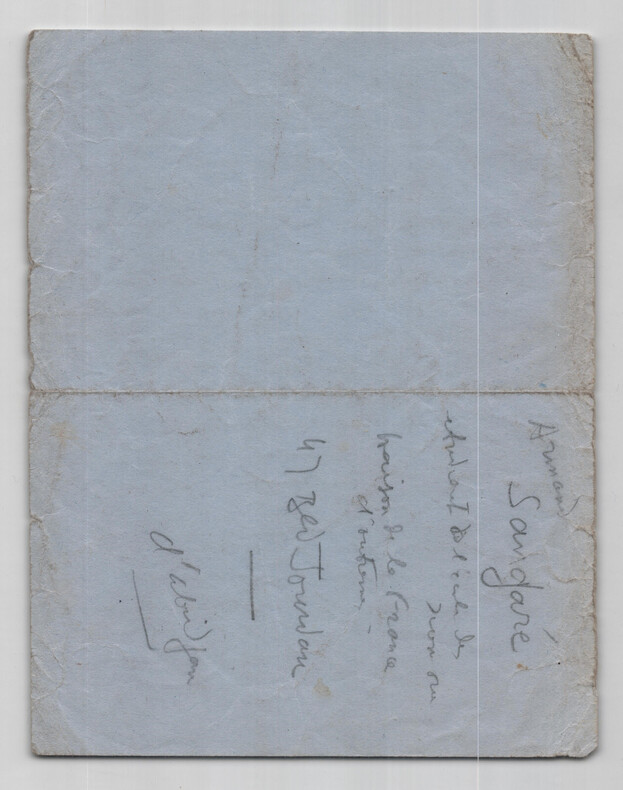 Armand
Sangaré
etudiant à l'école des
maison de la France
d'outremer
47 Bld Jourdan
d'abidjan